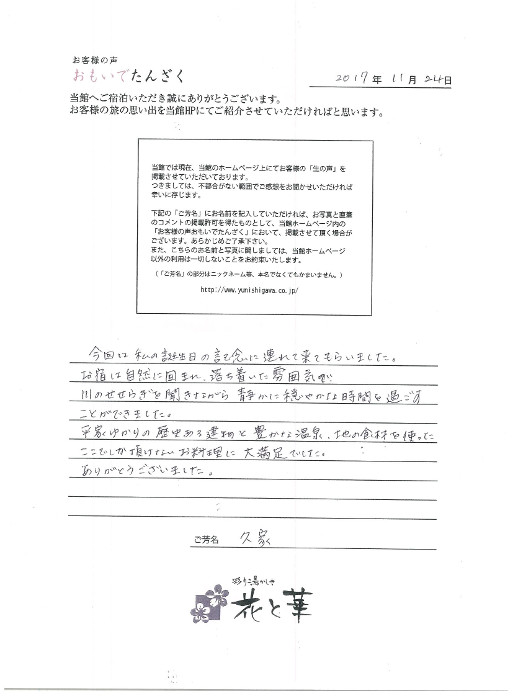 お客様の声
おもいでたんざく
2017年 11月 24日
当館へご宿泊いただき誠にありがとうございます。
お客様の旅の思い出を当館HPにてご紹介させていただければと思います。
当館では現在、当館のホームページ上にてお客様の「生の声」を
掲載させていただいております。
つきましては、不都合がない範囲でご感想をお聞かせいただければ
幸いに存じます。
下記の「ご芳名」にお名前を記入していただければ、お写真と直筆
のコメントの掲載許可を得たものとして、当館ホームページ内の
「お客様の声おもいでたんざく」において、掲載させて頂く場合が
ございます。あらかじめご了承下さい。
また、こちらのお名前と写真に関しましては、当館ホームページ
以外の利用は一切しないことをお約束いたします。
(「ご芳名」の部分はニックネーム等、本名でなくてもかまいません。)
http://www.yunishigawa.co.jp/
今回は私の誕生日の記念に連れて来てもらいました。
お宿は自然に囲まれ、落ち着いた雰囲気で
川のせせらぎを聞きながら静かに穏やかな時間を過ごす
ことができました。
平家ゆかりの歴史ある建物と豊かな温泉、地の食材を使った
ここでしか頂けないお料理に大満足でした。
ありがとうございました。
ご芳名 久家
彩り湯かしき
花と華